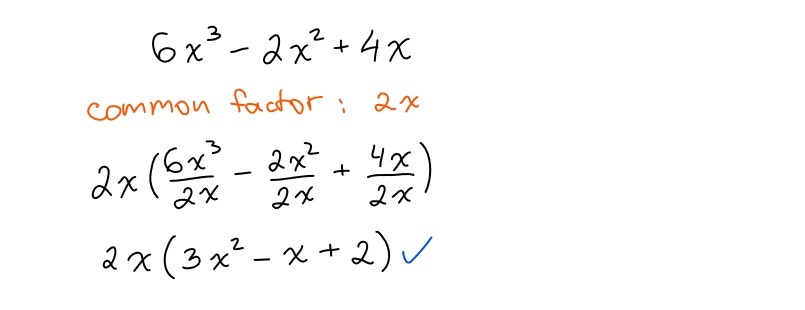 6x³ - 2x² + 4x
common factor: 2x
2x(6x³/2x - 2x²/2x + 4x/2x)
2x(3x² - x + 2) ✓